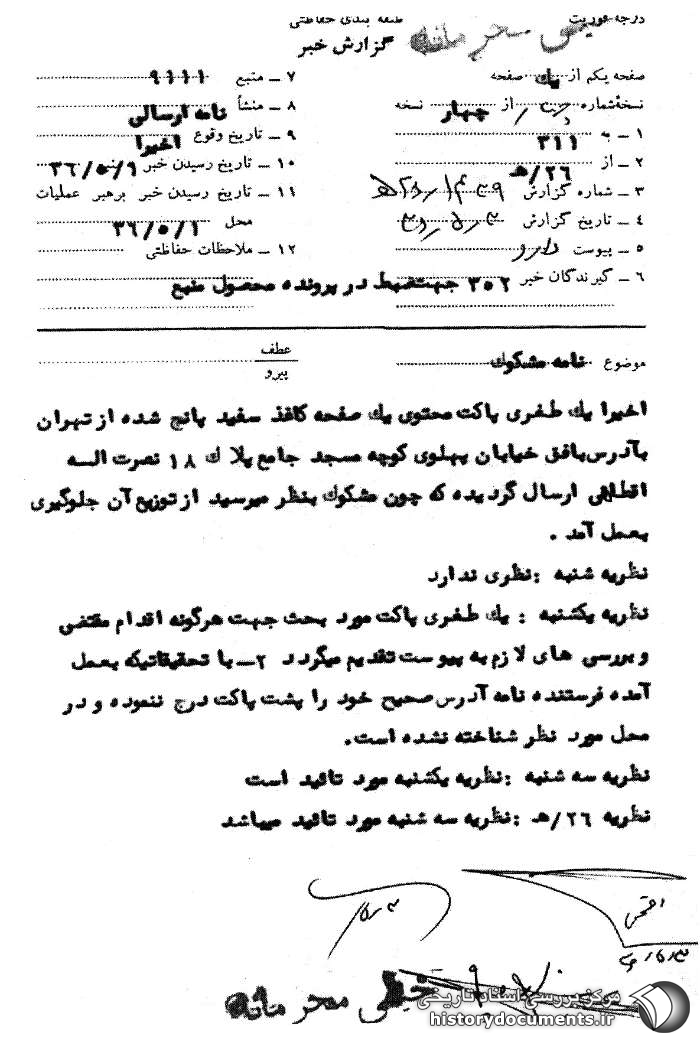 درجه فوریت
طبقه بندی حفاظتی
خیلی محرمانه
گزارش خبر
صفحه یکم از یك صفحه
نسخهٔ شماره از چهار نسخه
۱ ـ به ۳۱۱
۲ ـ از ۲۶/هـ
۳ ـ شماره گزارش
۴ ـ تاریخ گزارش
۵ ـ پیوست دارد
۶ ـ گیرندگان خبر ۳۰۲ جهت ضبط در پرونده محصول منبع
۷ ـ منبع ۹۱۱۱
۸ ـ منشأ نامه ارسالی
۹ ـ تاریخ وقوع اخیرا
۱۰ ـ تاریخ رسیدن خبر ۳۶/۵/۱
۱۱ ـ تاریخ رسیدن خبر برهبر عملیات
محل ۳۶/۵/۱
۱۲ ـ ملاحظات حفاظتی
موضوع نامه مشکوك
عطف
پیرو
اخیرا یك طغری پاکت محتوی یك صفحه کاغذ سفید پانچ شده از تهران
بآدرس بافق خیابان پهلوی کوچه مسجد جامع پلاك ۱۸ نصرت اله
ارسال گردیده که چون مشکوك بنظر میرسید از توزیع آن جلوگیری
بعمل آمد .
نظریه شنبه : نظری ندارد
نظریه یکشنبه : یك طغری پاکت مورد بحث جهت هرگونه اقدام مقتضی
و بررسی های لازم به پیوست تقدیم میگردد ۲ـ با تحقیقاتیکه بعمل
آمده فرستنده نامه آدرس صحیح خود را پشت پاکت درج ننموده و در
محل مورد نظر شناخته نشده است.
نظریه سه شنبه : نظریه یکشنبه مورد تائید است
نظریه ۲۶/هـ : نظریه سه شنبه مورد تائید میباشد
خیلی محرمانه
مرکز بررسی اسناد تاریخی
historydocuments.ir